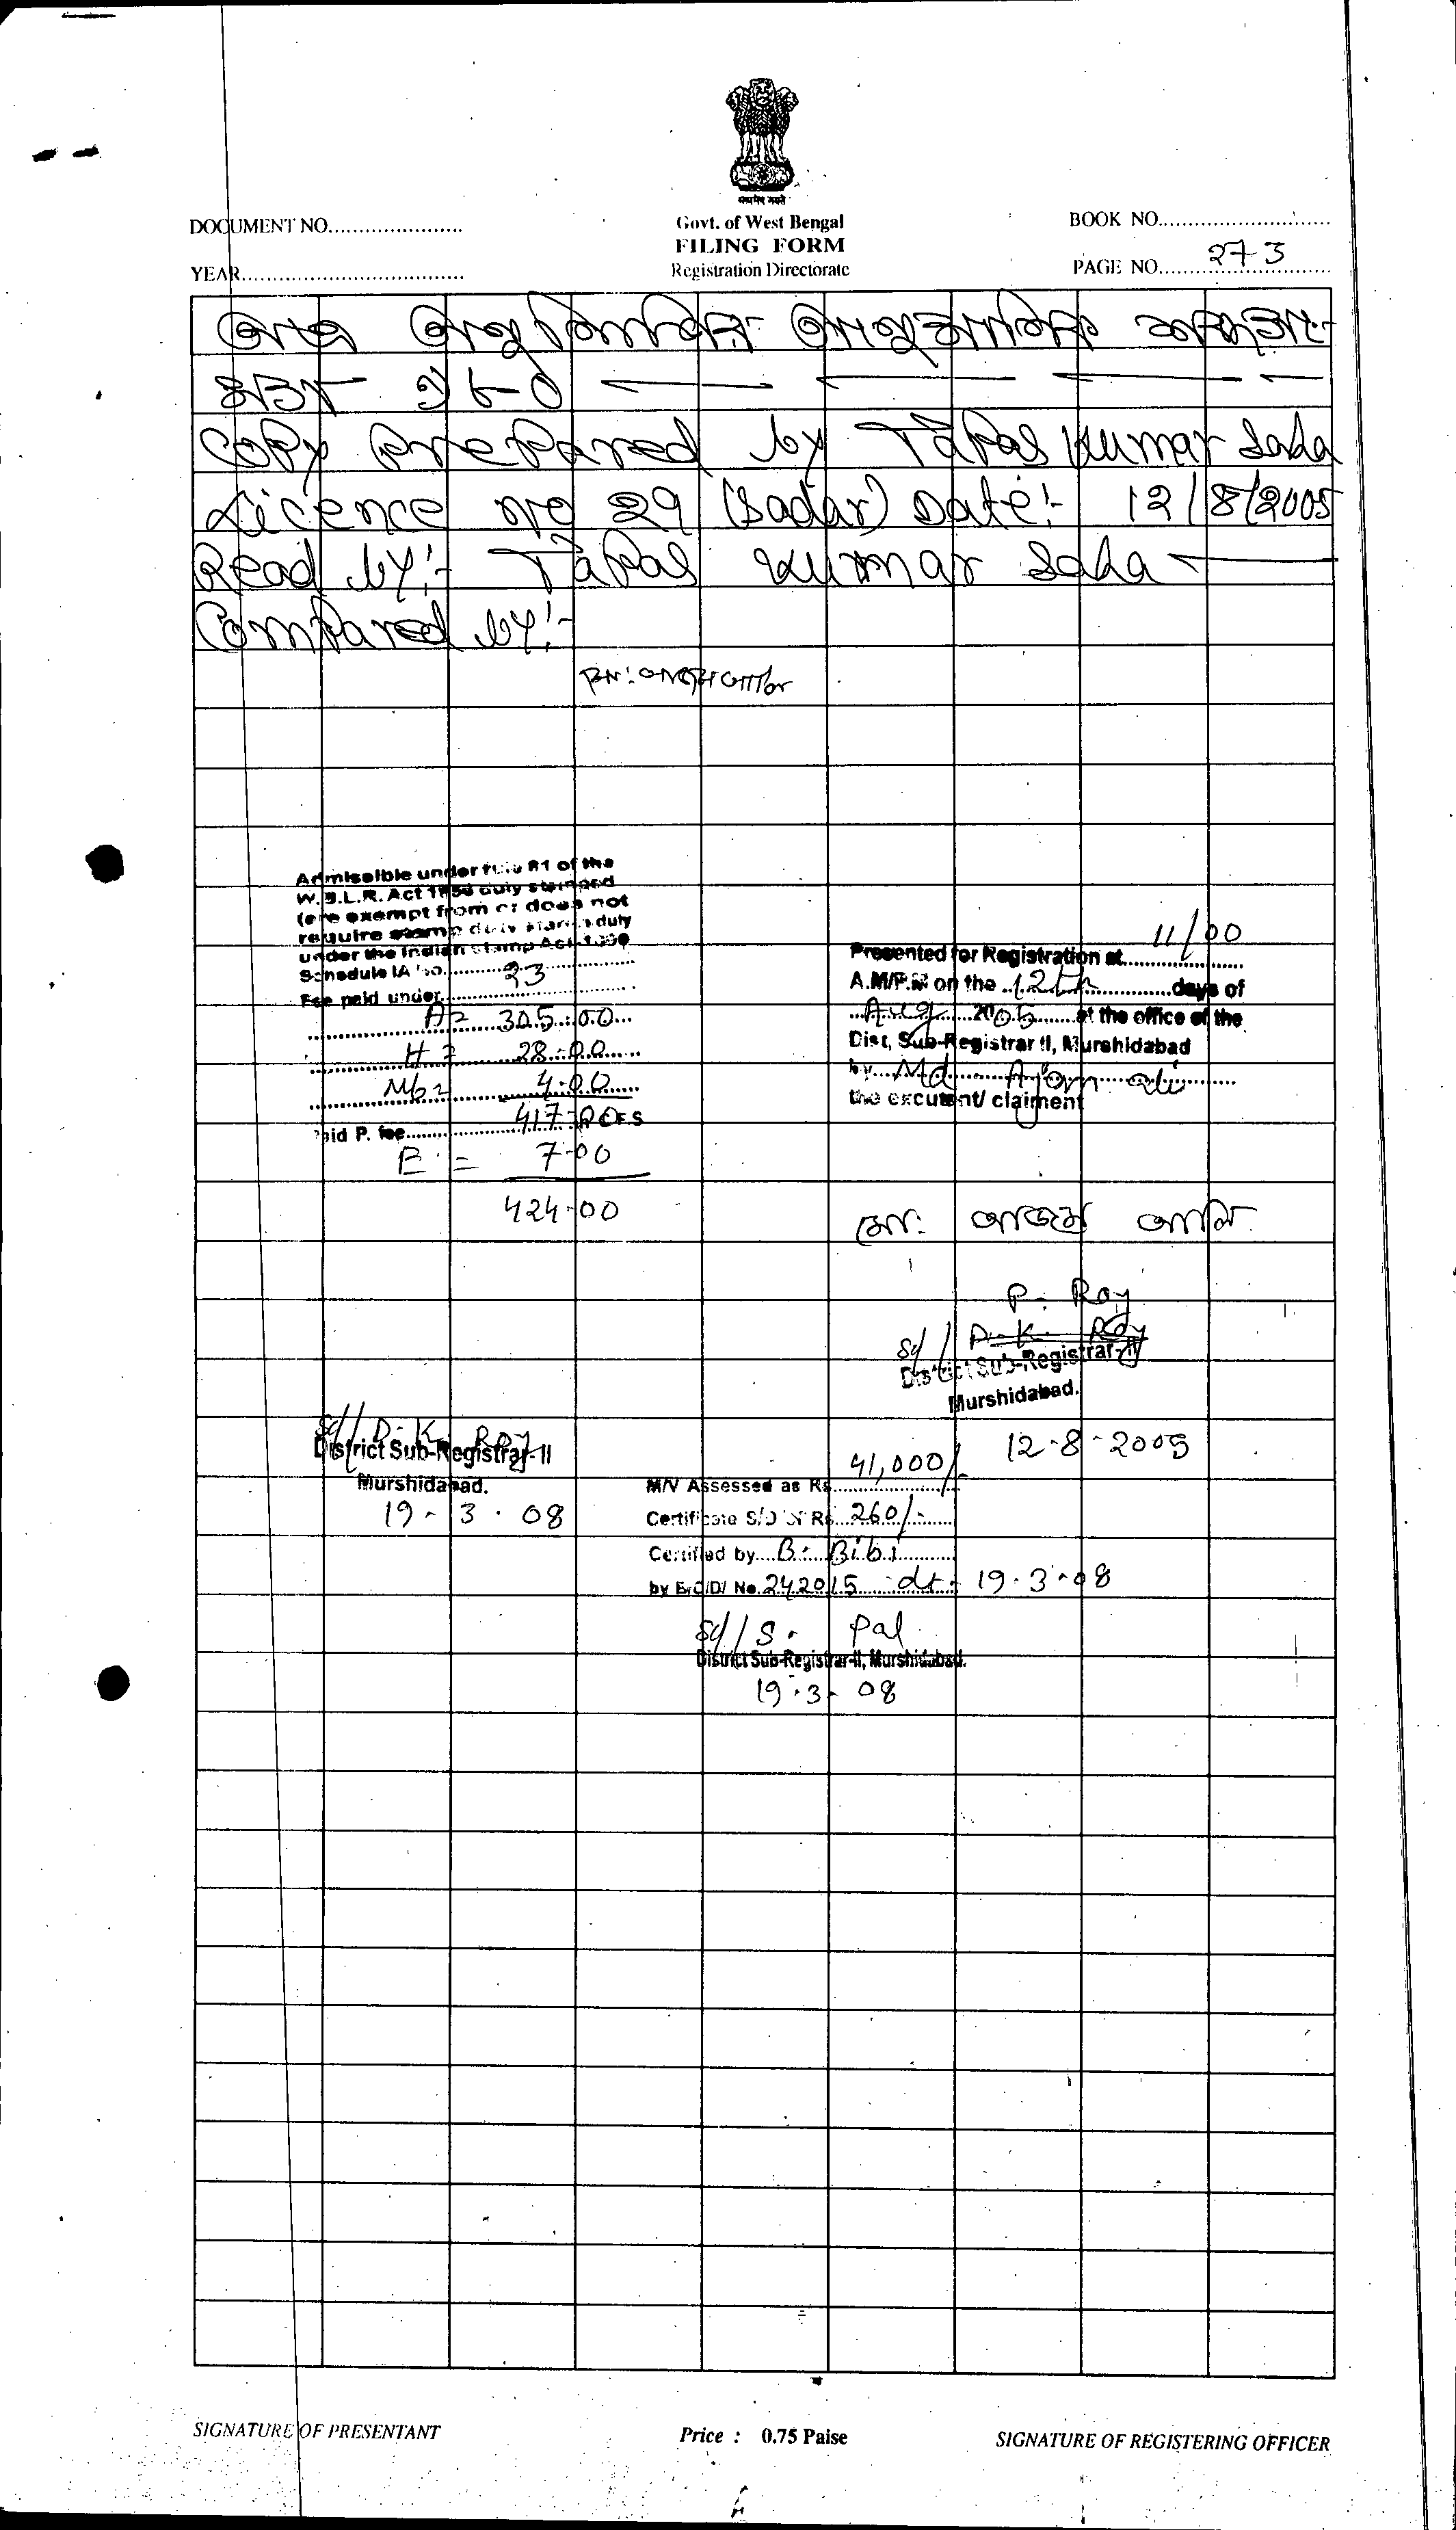 सत्यमेव जयते
Govt. of West Bengal
FILING FORM
Registration Directorate
DOCUMENT NO......................
YEAR...................................
BOOK NO............................
PAGE NO. 273
Copy Prepared by Tapas Kumar Saha
Licence no 29 (Sadar) Date:- 12/8/2005
Read by:- Tapas Kumar Saha
Compared by:-
Admissible under rule 21 of the
W.B.L.R. Act 1956 duly stamped
(or exempt from or does not
require stamp duty stamp duty
under the Indian Stamp Act 1899
Schedule IA No. 23
Fee paid under
A= 305.00
H = 28.00
Mb= 4.00
Paid P. fee 417.00 C.F.S
E = 7.00
424.00
Presented for Registration at 11/00
A.M/P.M on the 12th days of
Aug 2005 at the office of the
Dist, Sub-Registrar II, Murshidabad
by Md Ajom ali
the excutent/ claiment
মোঃ আজম আলি
P. Roy
Sd/ D. K. Roy
District Sub-Registrar-II
Murshidabad.
12-8-2005
Sd/ D. K. Roy
District Sub-Registrar-II
Murshidabad.
19-3-08
M/V Assessed as Rs 41,000/-
Certificate S/D of Rs 260/-
Certified by B. Bibi
by B/C/D/ No. 242015 dt- 19-3-08
Sd/ S. Pal
District Sub-Registrar-II, Murshidabad.
19-3-08
SIGNATURE OF PRESENTANT
Price : 0.75 Paise
SIGNATURE OF REGISTERING OFFICER